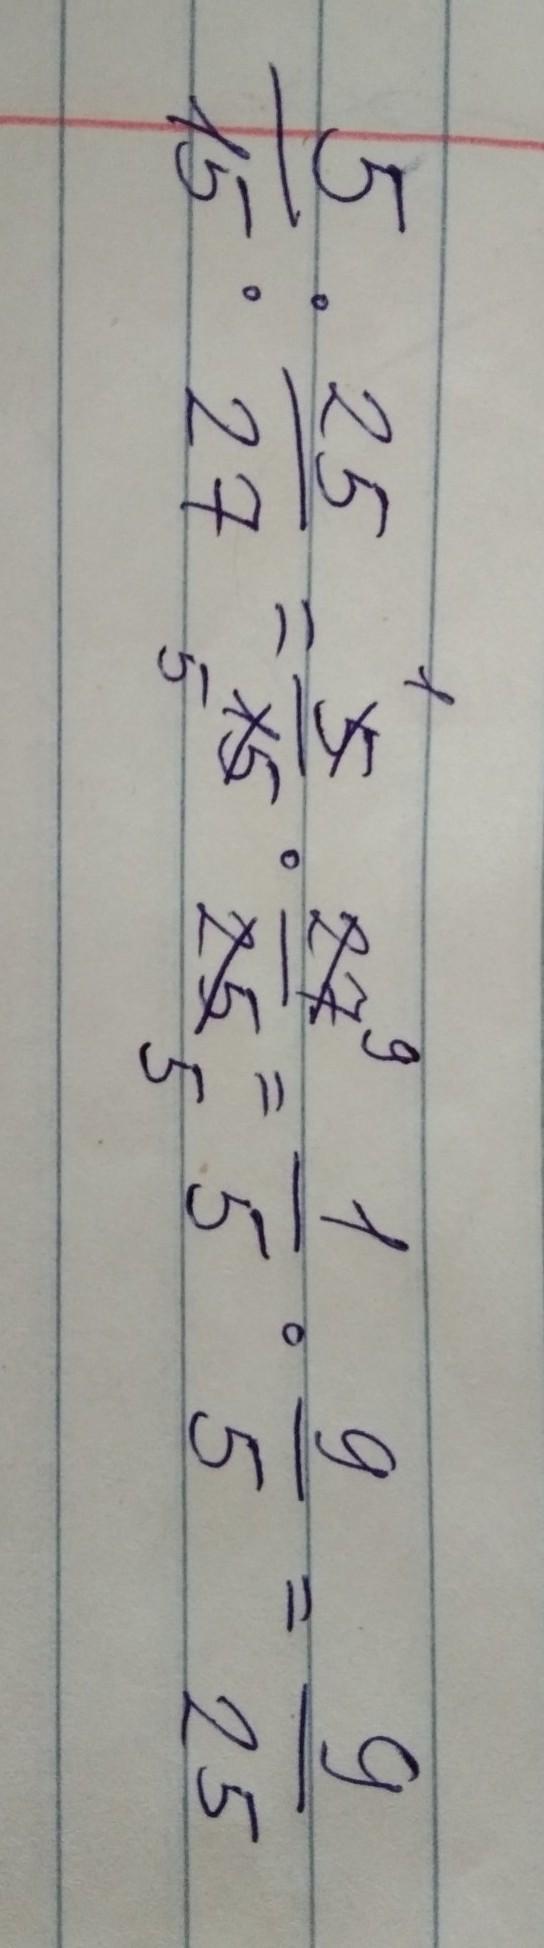 5/15 : 25/27 = 5/15 · 27/25 = 1/5 · 9/5 = 9/25